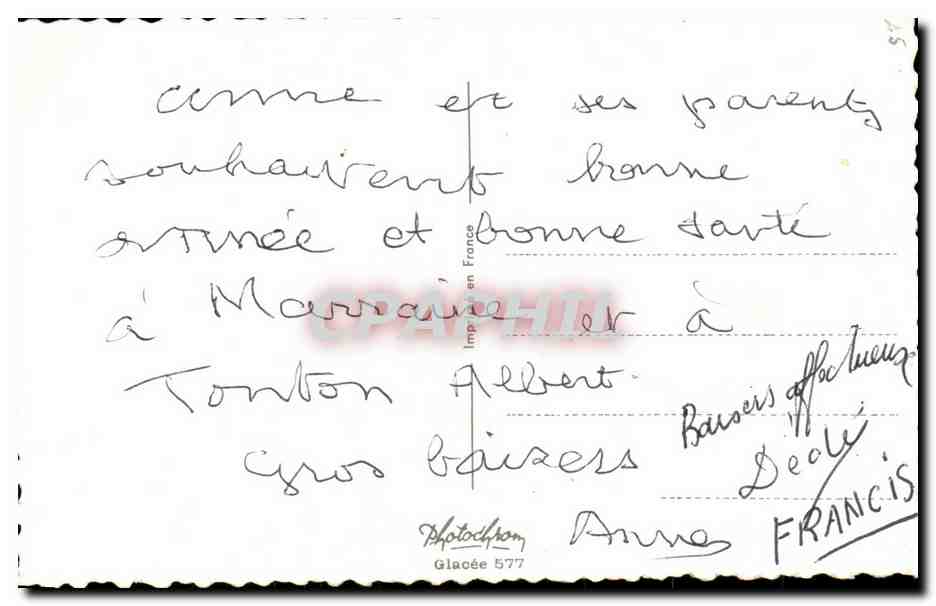 Anne et ses parents
souhaitent bonne
année et bonne santé
à Marraine et à
Tonton Albert.
Gros baisers
Anne
Baisers affectueux
Dédé
FRANCIS
Imprimé en France
CPAPHIL
Photochrom
Glacée 577